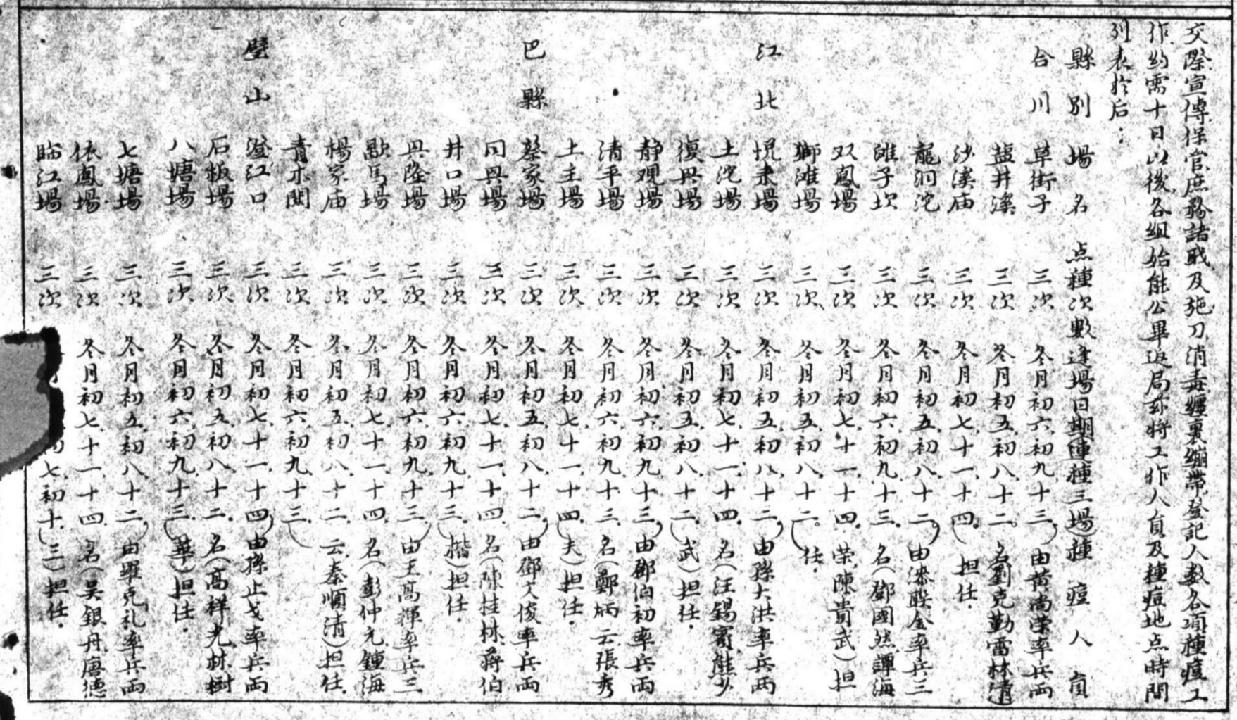 交際宣傳保官庶務諸戰及施刀消毒纏裹繃帶登記人數各項種痘工
作約需十日以後各組始能公畢返局茲將工作人員及種痘地点時間
列表於后：
縣別 場名 点種次數 逢場日期（連種三場） 種痘人員
合川 草街子 三次 冬月初六初九十三 由黃尚榮率兵兩
鹽井溪 三次 冬月初五初八十二 名（劉克勤雷林清
沙溪庙 三次 冬月初七十一十四 担任
龍洞沱 三次 冬月初五初八十二 由 率兵三
灘子坎 三次 冬月初六初九十三 名（鄧國然譚海
双鳳場 三次 冬月初七十一十四 荣陳貴武）担
獅灘場 三次 冬月初五初八十二 任
江北 悅来場 三次 冬月初五初八十二 由孫大洪率兵兩
土沱場 三次 冬月初七十一十四 名（汪錫甯熊少
復興場 三次 冬月初五初八十二 武）担任
靜观場 三次 冬月初六初九十三 由鄧伯初率兵兩
清平場 三次 冬月初六初九十三 名（鄭炳云張秀
土主場 三次 冬月初七十一十四 夫）担任
巴縣 蔡家場 三次 冬月初五初八十二 由鄧文俊率兵兩
同興場 三次 冬月初七十一十四 名（陳桂林蔣伯
井口場 三次 冬月初六初九十三 楷）担任
興隆場 三次 冬月初六初九十三 由王高輝率兵三
歇馬場 三次 冬月初七十一十四 名（彭仲光鍾海
楊家庙 三次 冬月初五初八十二 云秦順清）担任
青木関 三次 冬月初六初九十三
璧山 澄江口 三次 冬月初七十一十四 由孫止戈率兵兩
石板場 三次 冬月初五初八十二 名（高祥光林樹
八塘場 三次 冬月初六初九十三 華）担任
七塘場 三次 冬月初五初八十二 由瞿克礼率兵兩
依鳳場 三次 冬月初七十一十四 名（吴银丹唐德
臨江場 三次 初七初十 三）担任